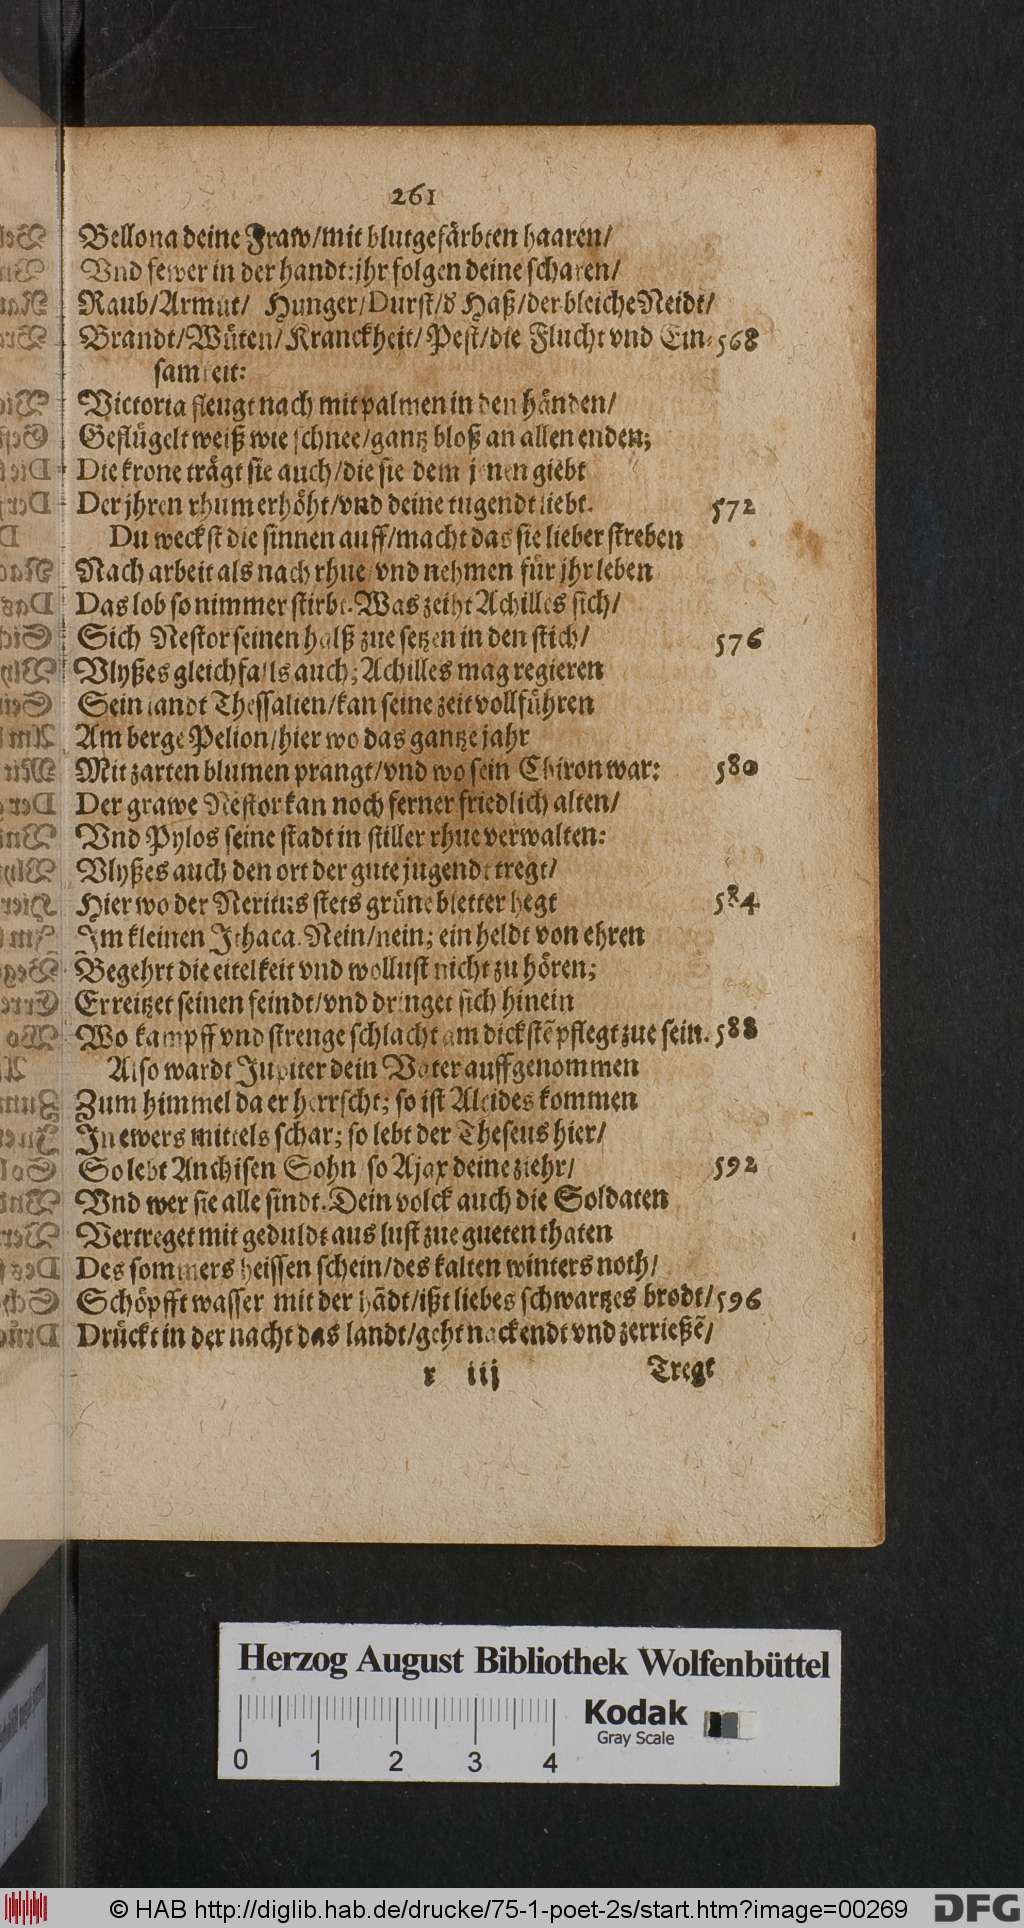 261
Bellona deine Fraw/mit blutgefärbten haaren/
Vnd fewer in der handt: jhr folgen deine scharen/
Raub/Armut/ Hunger/Durst/d̕ Haß/der bleiche Neidt/
Brandt/Wüten/Kranckheit/Pest/die Flucht vnd Ein- 568
samkeit:
Victoria fleugt nach mit palmen in den händen/
Geflügelt weiß wie schnee/gantz bloß an allen enden;
Die krone trägt sie auch/die sie dem jenen giebt
Der jhren rhum erhöht/vnd deine tugendt liebt. 572
Du weckst die sinnen auff/macht das sie lieber streben
Nach arbeit als nach rhue/vnd nehmen für jhr leben
Das lob so nimmer stirbt. Was zeiht Achilles sich/
Sich Nestor seinen halß zue setzen in den stich/ 576
Vlyßes gleichfalls auch; Achilles mag regieren
Sein landt Thessalien/kan seine zeit vollführen
Am berge Pelion/hier wo das gantze jahr
Mit zarten blumen prangt/vnd wo sein Chiron war: 580
Der grawe Nestor kan noch ferner friedlich alten/
Vnd Pylos seine stadt in stiller rhue verwalten:
Vlyßes auch den ort der gute jugendt tregt/
Hier wo der Neritus stets grüne bletter hegt 584
Im kleinen Ithaca. Nein/nein; ein heldt von ehren
Begehrt die eitelkeit vnd wollust nicht zu hören;
Er reitzet seinen feindt/vnd dringet sich hinein
Wo kampff vnd strenge schlacht am dickstẽ pflegt zue sein. 588
Also wardt Jupiter dein Vater auffgenommen
Zum himmel da er herrscht; so ist Alcides kommen
In ewers mittels schar; so lebt der Theseus hier/
So lebt Anchisen Sohn so Ajax deine ziehr/ 592
Vnd wer sie alle sindt. Dein volck auch die Soldaten
Vertreget mit geduldt aus lust zue gueten thaten
Des sommers heissen schein/des kalten winters noth/
Schöpfft wasser mit der hãdt/ißt liebes schwartzes brodt/ 596
Drückt in der nacht das landt/geht nackendt vnd zerrießẽ/
x iij Tregt
Herzog August Bibliothek Wolfenbüttel
Kodak
Gray Scale
0 1 2 3 4
© HAB http://diglib.hab.de/drucke/75-1-poet-2s/start.htm?image=00269
DFG